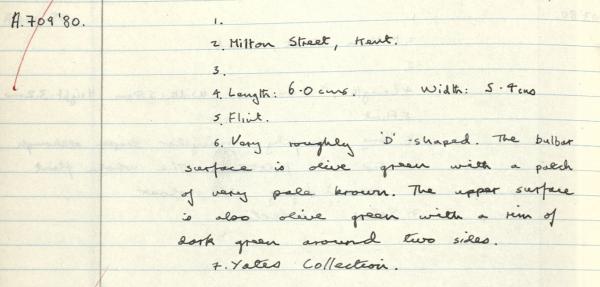 A.709'80.
1.
2. Milton Street, Kent.
3.
4. Length: 6.0 cms. Width: 5.4cms
5. Flint.
6. Very roughly 'D'-shaped. The bulbar
surface is olive green with a patch
of very pale brown. The upper surface
is also olive green with a rim of
dark green around two sides.
7. Yates Collection.